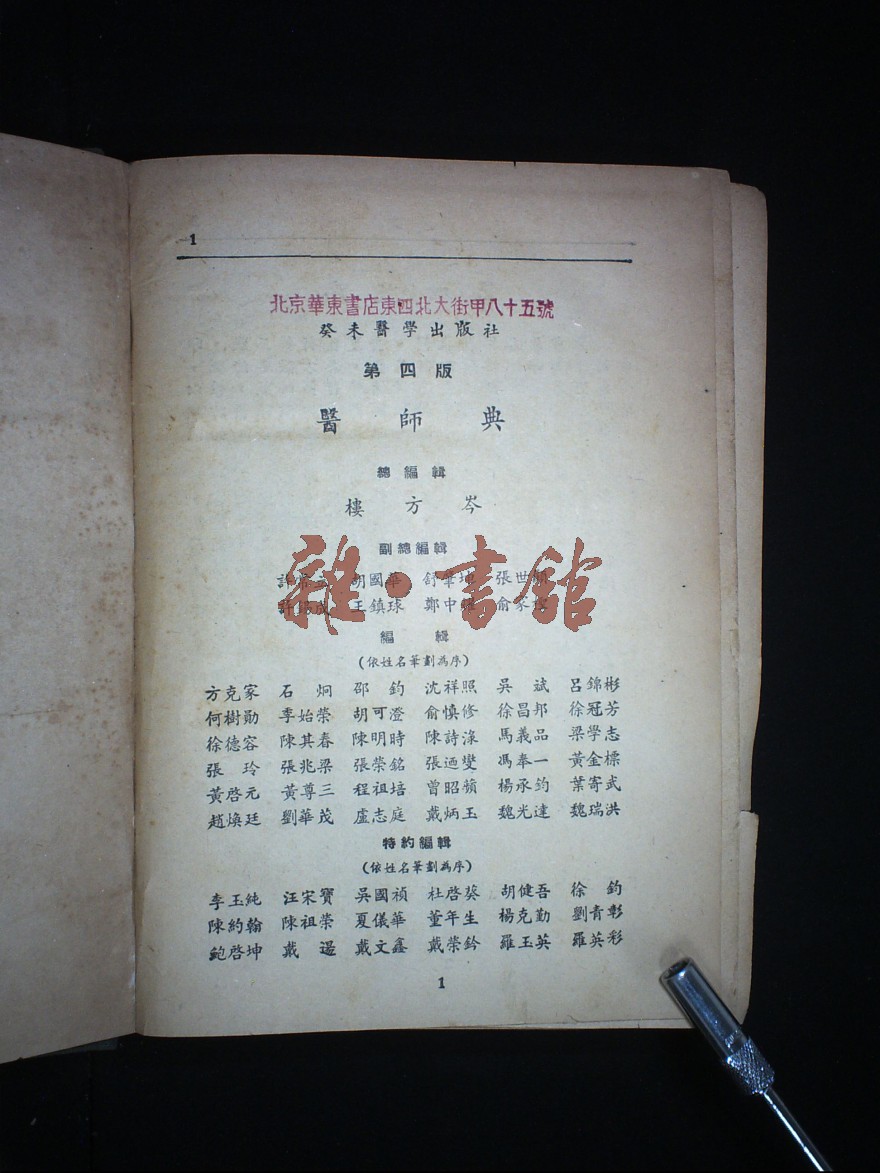 1
北京華東書店東四北大街甲八十五號
癸未醫學出版社
第四版
醫師典
總編輯
樓方岑
副總編輯
胡國華 舒肇坤 張世順
王鎮球 鄭中 俞家
雜·書館
編輯
(依姓名筆劃為序)
方克家 石炯 邵鈞 沈祥照 吳斌 呂錦彬
何樹勛 季始榮 胡可澄 俞慎修 徐昌邦 徐冠芳
徐德容 陳其春 陳明時 陳詩淥 馬義品 梁學志
張玲 張兆梁 張榮銘 張迺燮 馮奉一 黃金標
黃啓元 黃尊三 程祖培 曾昭蘋 楊承鈞 葉寄武
趙煥廷 劉華茂 盧志庭 戴炳玉 魏光達 魏瑞洪
特約編輯
(依姓名筆劃為序)
李玉純 汪宋寶 吳國禎 杜啓葵 胡健吾 徐鈞
陳約翰 陳祖榮 夏儀華 董年生 楊克勤 劉青彰
鮑啓坤 戴遏 戴文鑫 戴榮鈴 羅玉英 羅英彩
1